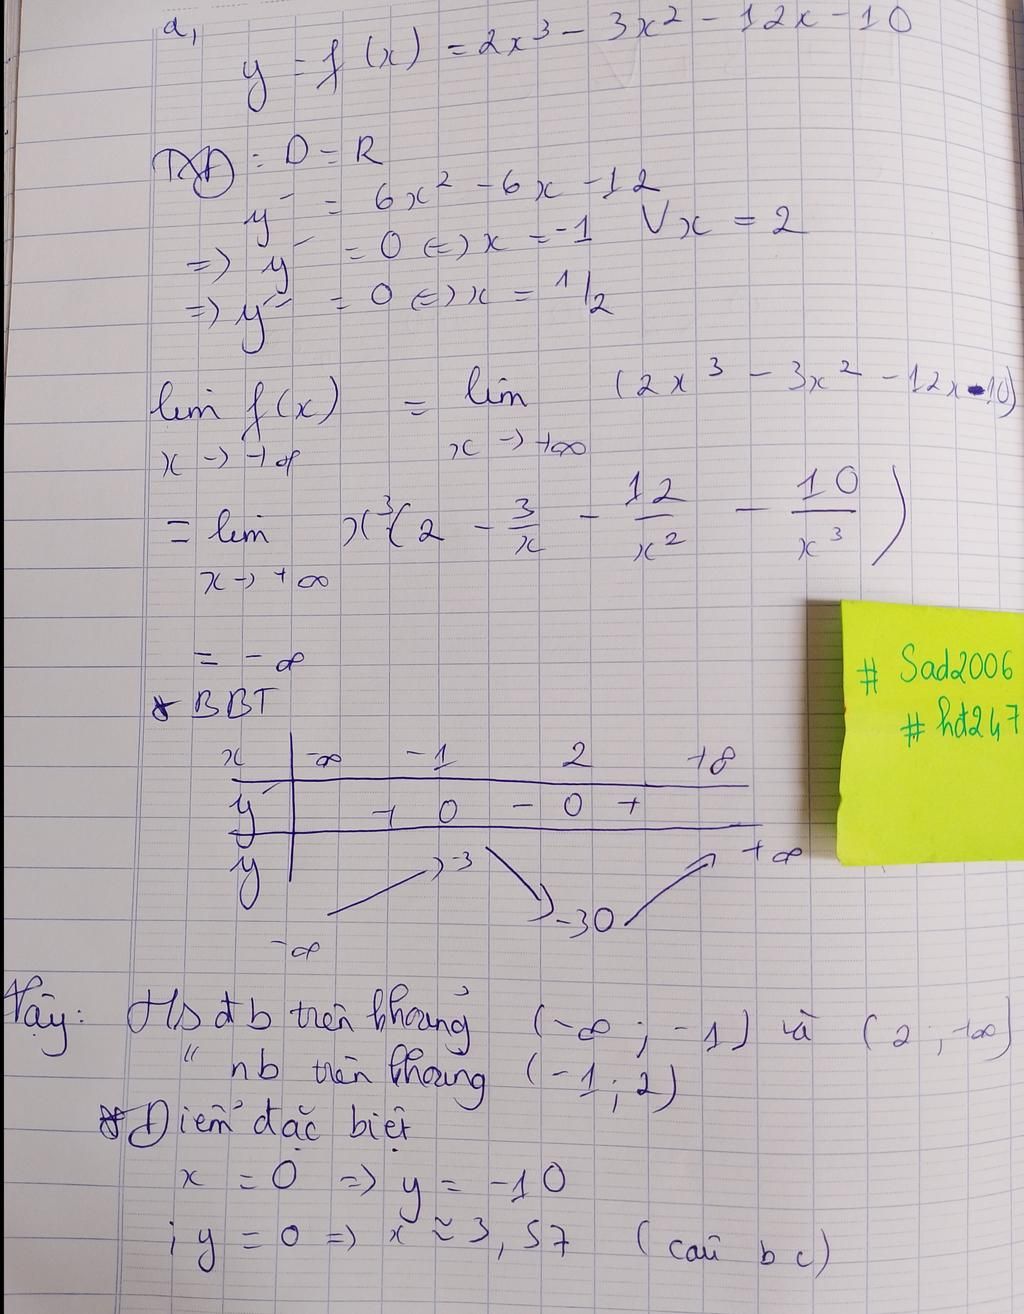 a,
y = f(x) = 2x³ - 3x² - 12x - 10
TXĐ : D = R
y' = 6x² - 6x - 12
=> y' = 0 <=> x = -1 V x = 2
=> y'' = 0 <=> x = 1/2
lim f(x) = lim (2x³ - 3x² - 12x - 10)
x -> +∞ x -> +∞
= lim x³(2 - 3/x - 12/x² - 10/x³)
x -> +∞
= -∞
* BBT
x -∞ -1 2 +∞
y' + 0 - 0 +
y -3 +∞
-∞ -30
Vậy: Hs đb trên khoảng (-∞ ; -1) và (2 ; +∞)
" nb trên khoảng (-1 ; 2)
* Điểm đặc biệt
x = 0 => y = -10
; y = 0 => x ≈ 3,57 (câu b c)
# Sad2006
# hđ247